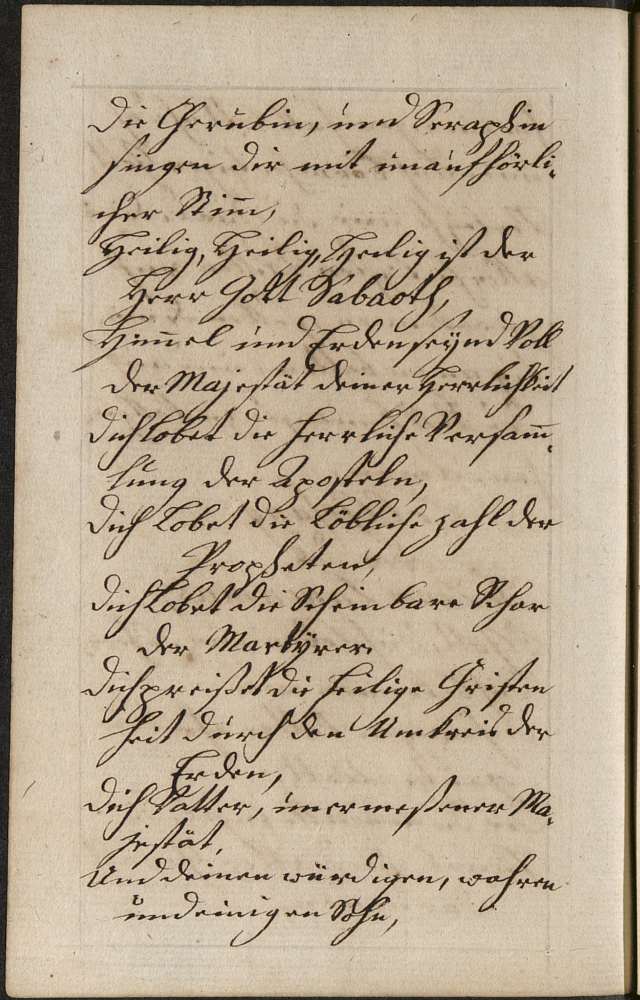 Die Cherubin, und Seraphin
singen dir mit unaufhörli-
cher Stim̅,
Heilig, Heilig, Heilig ist der
Herr Gott Sabaoth,
Him̅el und Erden seynd Voll
der Majestät deiner Herrlichkeit
dich lobet die herrliche Versam̅-
lung der Aposteln,
dich Lobet die Löbliche zahl der
Propheten,
dich Lobet die Scheinbare Schar
der Martÿrer.
dich preiset die heilige Christen
heit durch den Umkreis der
Erden,
dich Vatter, unermeßener Ma-
jestät,
Und deinen würdigen, wahren
und einigen Sohn,